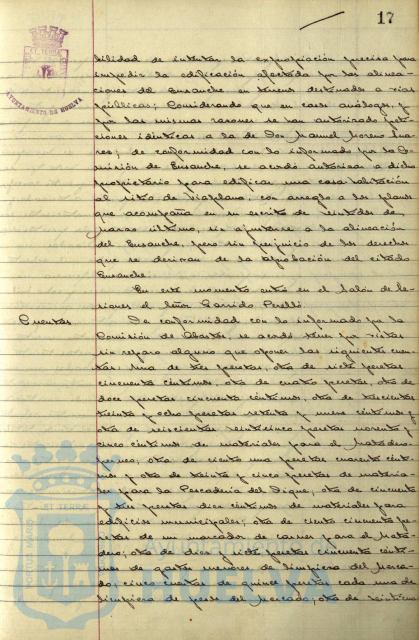 17
AYUNTAMIENTO DE HUELVA
bilidad de intentar la expropiación precisa para
impedir la edificación afectada por las alinea-
ciones del Ensanche en terrenos destinados a vías
públicas; Considerando que en casos análogos, y
por las mismas razones se han autorizado peti-
ciones idénticas a la de Don Manuel Moreno Sua-
rez; de conformidad con lo informado por la Co-
misión de Ensanche, se acordó autorizar a dicho
propietario para edificar una casa habitación
al sitio de Viaplana, con arreglo a los planos
que acompaña en su escrito de veintidos de
Marzo último, sin ajustarse a la alineación
del Ensanche, pero sin perjuicio de los derechos
que se derivan de la aprobación del citado
Ensanche.
En este momento entró en el Salón de Se-
siones el Señor Garrido Perelló.
Cuentas
De conformidad con lo informado por la
Comisión de Abastos, se acordó tener por vistas
sin reparo alguno que oponer las siguientes cuen-
tas: Una de tres pesetas, otra de siete pesetas
cincuenta céntimos, otra de cuatro pesetas, otra de
doce pesetas cincuenta céntimos, otra de trescientas
treinta y ocho pesetas setenta y nueve céntimos y
otra de seiscientas veinticinco pesetas noventa y
cinco céntimos de materiales para el Matadero
otra de ciento una pesetas cuarenta cénti-
mos y otra de treinta y cinco pesetas de materia-
les para la Pescadería del Dique; otra de cincuenta
y tres pesetas diez céntimos de materiales para
edificios municipales; otra de ciento cincuenta pe-
setas de un marcador de carnes para el Mata-
dero; otra de diez y siete pesetas cincuenta cénti-
mos de gastos menores de limpieza del Merca-
do; cinco cuentas de quince pesetas cada una de
limpieza de peso del Mercado; otra de veintiuna